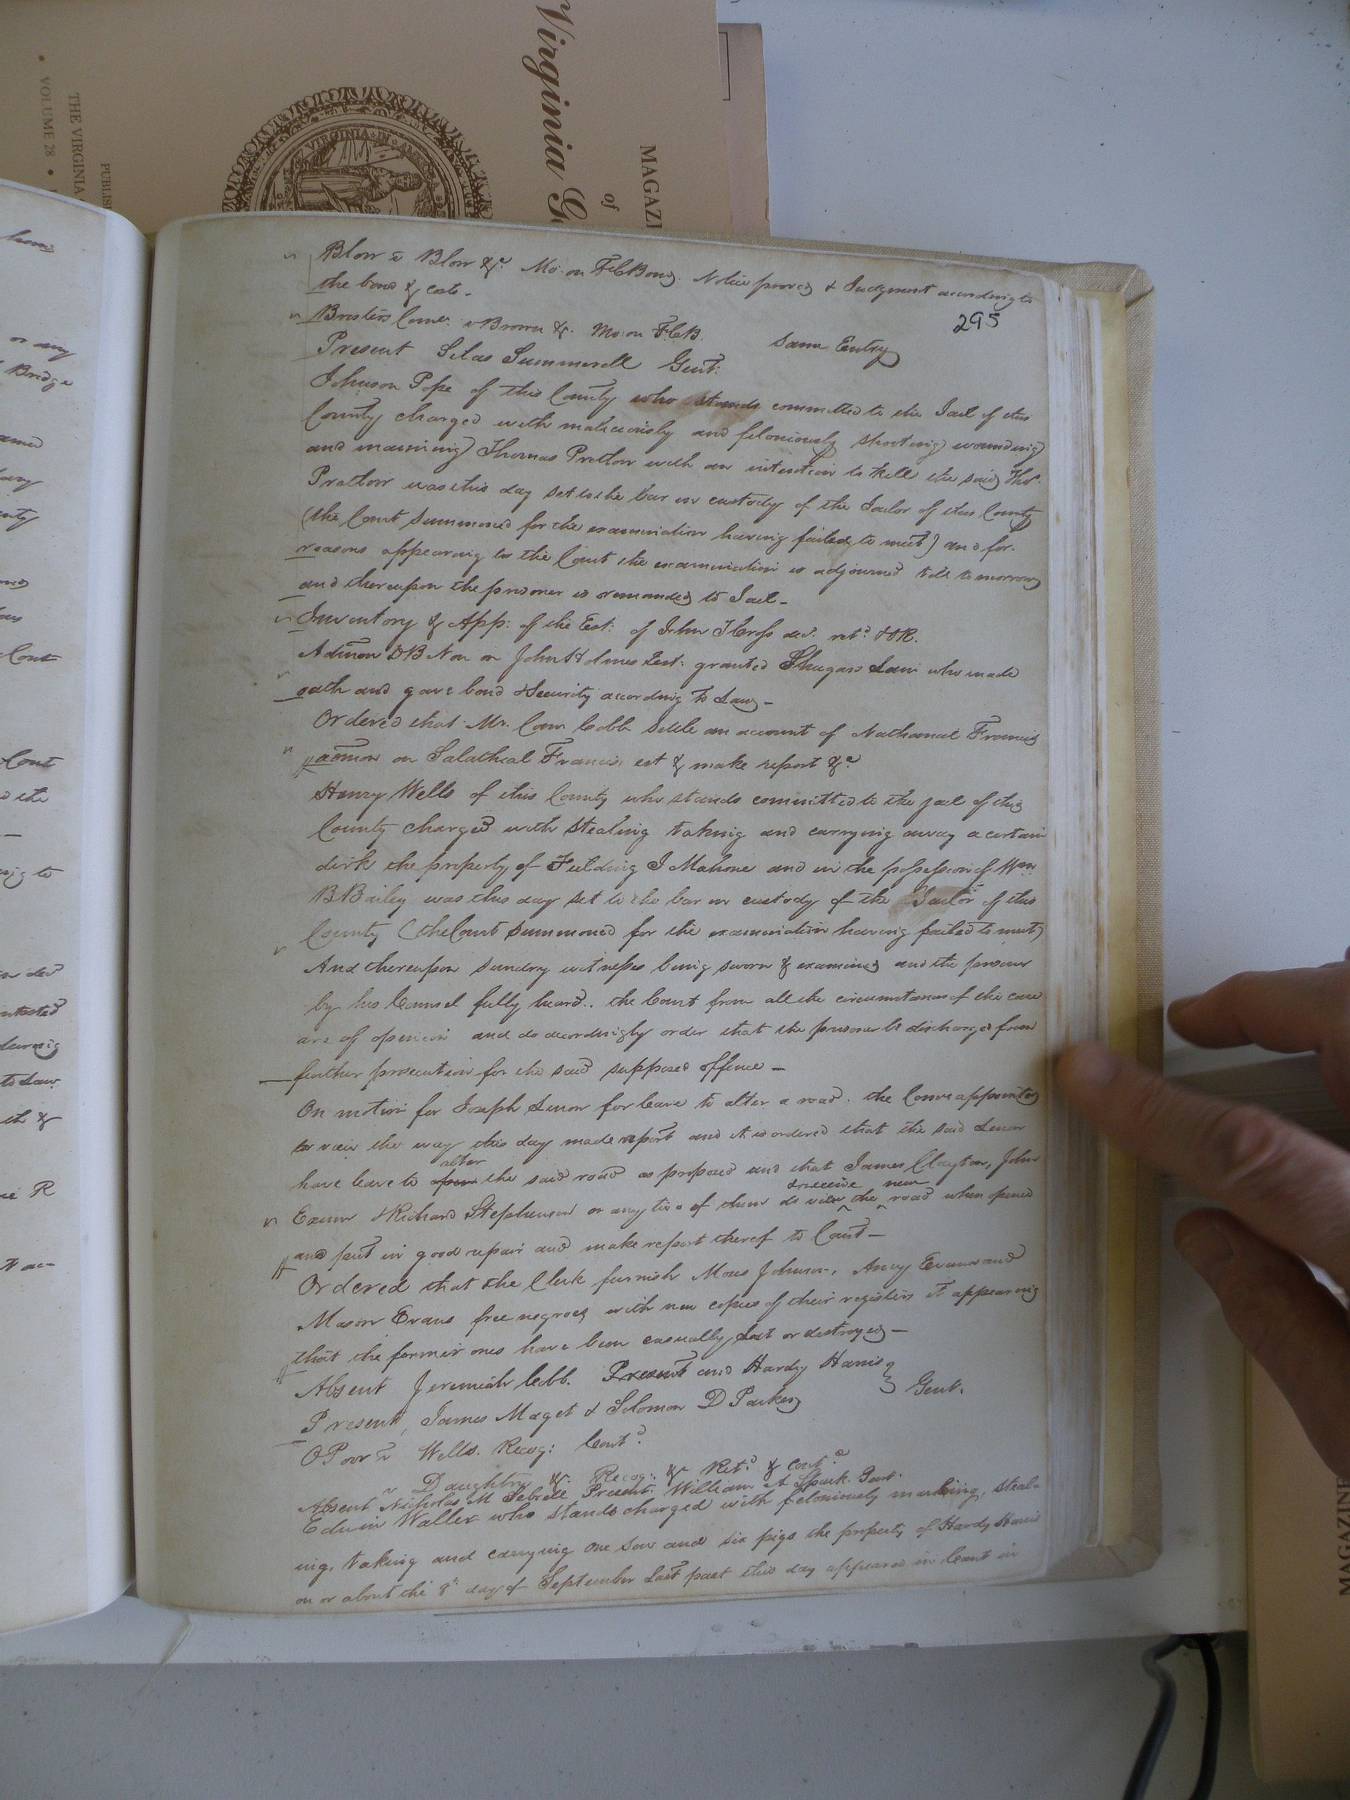 Virginia G
MAGAZI
of
PUBLIS
THE VIRGINIA
• VOLUME 28 •
VIRGINIA IN
295
Blow vs Blow &c. Mo: on FCBond. Notice proved & Judgment according to
the bond & costs -
Present Silas Summerell Gent:
Same Entry
Johnson Pope of this County who stands committed to the Jail of this
County charged with maliciously and feloniously shooting wounding
and maiming Thomas Pretlow with an intention to kill the said Thos.
Pretlow was this day set to the bar in custody of the Jailor of this County
(the Court summoned for the examination having failed to meet) and for
reasons appearing to the Court the examination is adjourned till tomorrow
and thereupon the prisoner is remanded to Jail -
Inventory & App: of the Est: of John T Cross dec. retd. & OR.
Admon DB Non on John Holmes Est: granted who made
oath and gave bond & Security according to Law -
Ordered that Mr. Cobb settle an account of Nathaniel Francis
admon on Salathial Francis est & make report &c
Henry Wells of this County who stands committed to the jail of this
County charged with stealing taking and carrying away a certain
dirk the property of Fielding J Mahone and in the possession of Wm.
B Bailey was this day set to the bar in custody of the Jailor of this
County (the Court summoned for the examination having failed to meet)
And thereupon sundry witnesses being sworn & examined and the prisoner
by his Counsel fully heard.. the Court from all the circumstances of the case
are of opinion and do accordingly order that the prisoner be discharged from
further prosecution for the said supposed offence -
On motion for Joseph for leave to alter a road. the appointed
to view the way this day made report and it is ordered that the said
have leave to alter the said road as proposed and that James Clayton, John
Exum & Richard Stephenson or any two of them do view & receive the new road when opened
and put in good repair and make report thereof to Court -
Ordered that the Clerk furnish Johnson, Evans and
Mason Evans free negroes with new copies of their registers it appearing
that the former ones have been casually lost or destroyed -
Absent Jeremiah Cobb. Present and Hardy Harris
Present, James Maget & Solomon D Parker } Gent.
vs Wells. Recog: Contd.
vs Daughtry &c. Recog: &c Retd. & contd.
Absent Nicholas M Sebrell Present. William A Spark Gent.
Edwin Waller who stands charged with feloniously marking, steal-
ing, taking and carrying one sow and six pigs the property of Hardy Harris
on or about the 8th day of September last past this day appeared in Court in
MAGAZINE